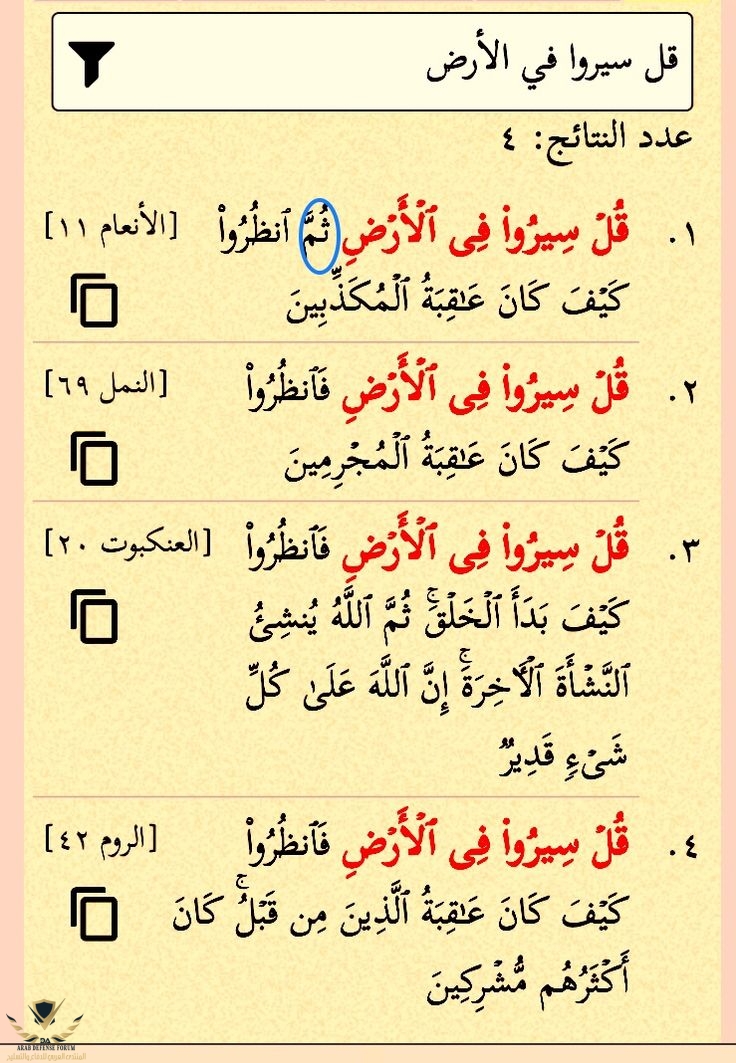 قل سيروا في الأرض
عدد النتائج: ٤
١. قُلْ سِيرُوا۟ فِى ٱلْأَرْضِ ثُمَّ ٱنظُرُوا۟ [الأنعام ١١]
كَيْفَ كَانَ عَـٰقِبَةُ ٱلْمُكَذِّبِينَ
٢. قُلْ سِيرُوا۟ فِى ٱلْأَرْضِ فَٱنظُرُوا۟ [النمل ٦٩]
كَيْفَ كَانَ عَـٰقِبَةُ ٱلْمُجْرِمِينَ
٣. قُلْ سِيرُوا۟ فِى ٱلْأَرْضِ فَٱنظُرُوا۟ [العنكبوت ٢٠]
كَيْفَ بَدَأَ ٱلْخَلْقَ ۚ ثُمَّ ٱللَّهُ يُنشِئُ
ٱلنَّشْأَةَ ٱلْـَٔاخِرَةَ ۚ إِنَّ ٱللَّهَ عَلَىٰ كُلِّ
شَىْءٍ قَدِيرٌ
٤. قُلْ سِيرُوا۟ فِى ٱلْأَرْضِ فَٱنظُرُوا۟ [الروم ٤٢]
كَيْفَ كَانَ عَـٰقِبَةُ ٱلَّذِينَ مِن قَبْلُ ۚ كَانَ
أَكْثَرُهُم مُّشْرِكِينَ
ARAB DEFENSE FORUM
المنتدى العربي للدفاع والتسليح